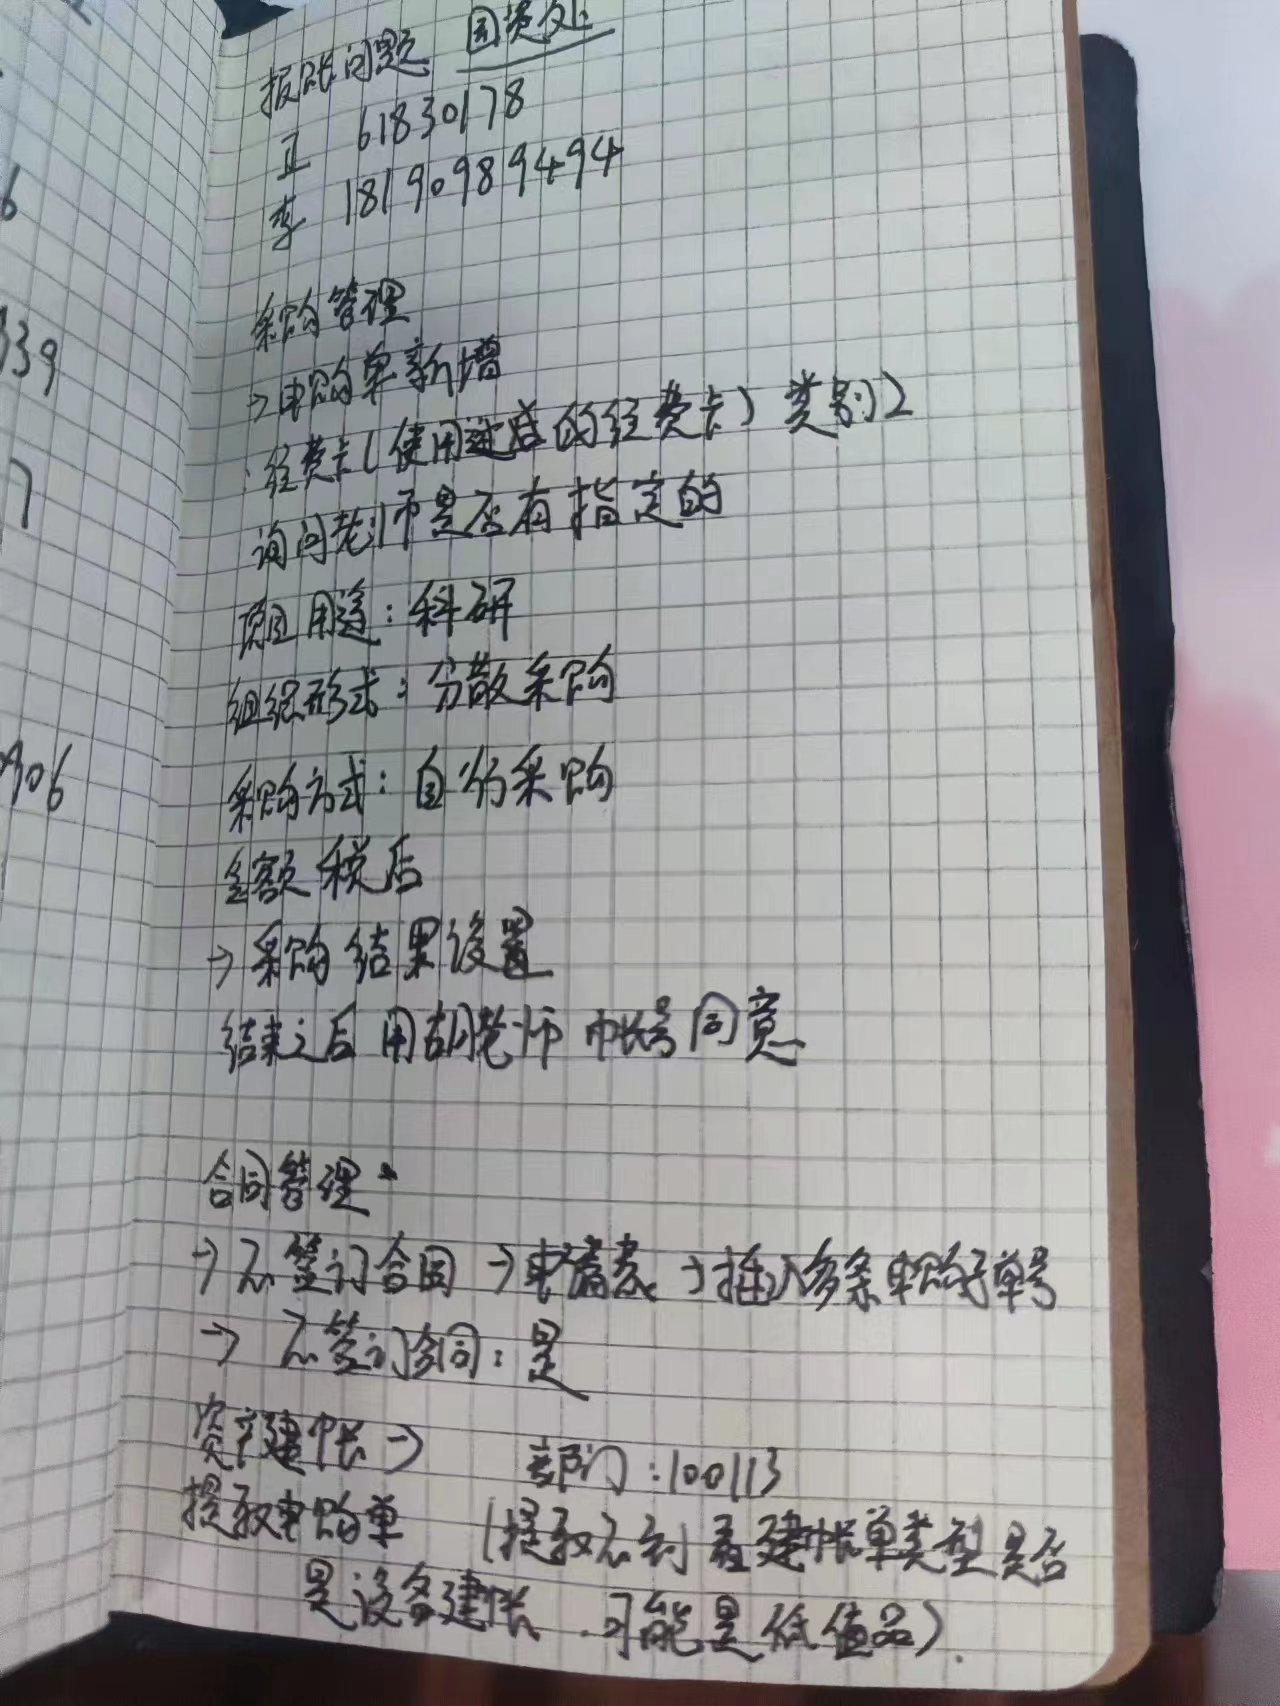 报账问题 国资处
王 61830178
李 18190989494
采购管理
→申购单新增
经费卡(使用过后的经费卡)类别2
询问老师是否有指定的
项目用途：科研
组织形式：分散采购
采购方式：自行采购
金额 税后
→采购结果设置
结束之后 用胡老师 帐号同意
合同管理
→不签订合同→申请表→插入多条申购子单号
→ 不签订合同：是
资产建帐→ 部门：100113
提取申购单 (提取不到看建帐单类型是否
是设备建帐.可能是低值品).
6
339
7
906